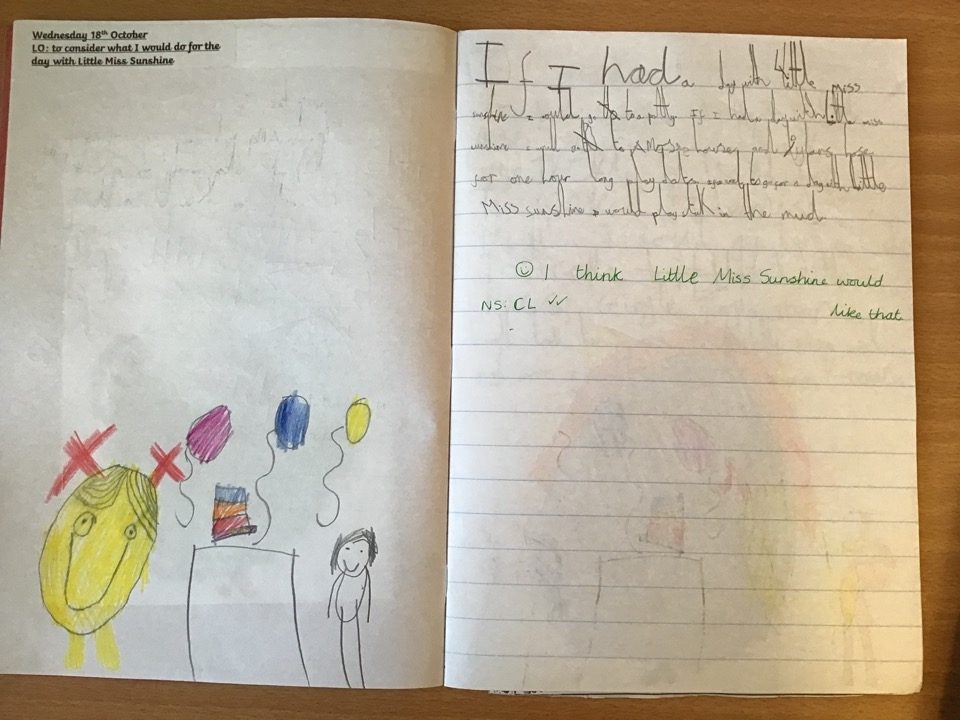 Wednesday 18th October
LO: to consider what I would do for the
day with Little Miss Sunshine
If I had a day with little miss
sunshine I would go to a patty. If I had a day with Little miss
sunshine I would to house and
for one hour long play date to go for a day with Little
Miss sunshine I would play stuk in the mud.
☺ I think Little Miss Sunshine would
like that
NS: CL ✓✓